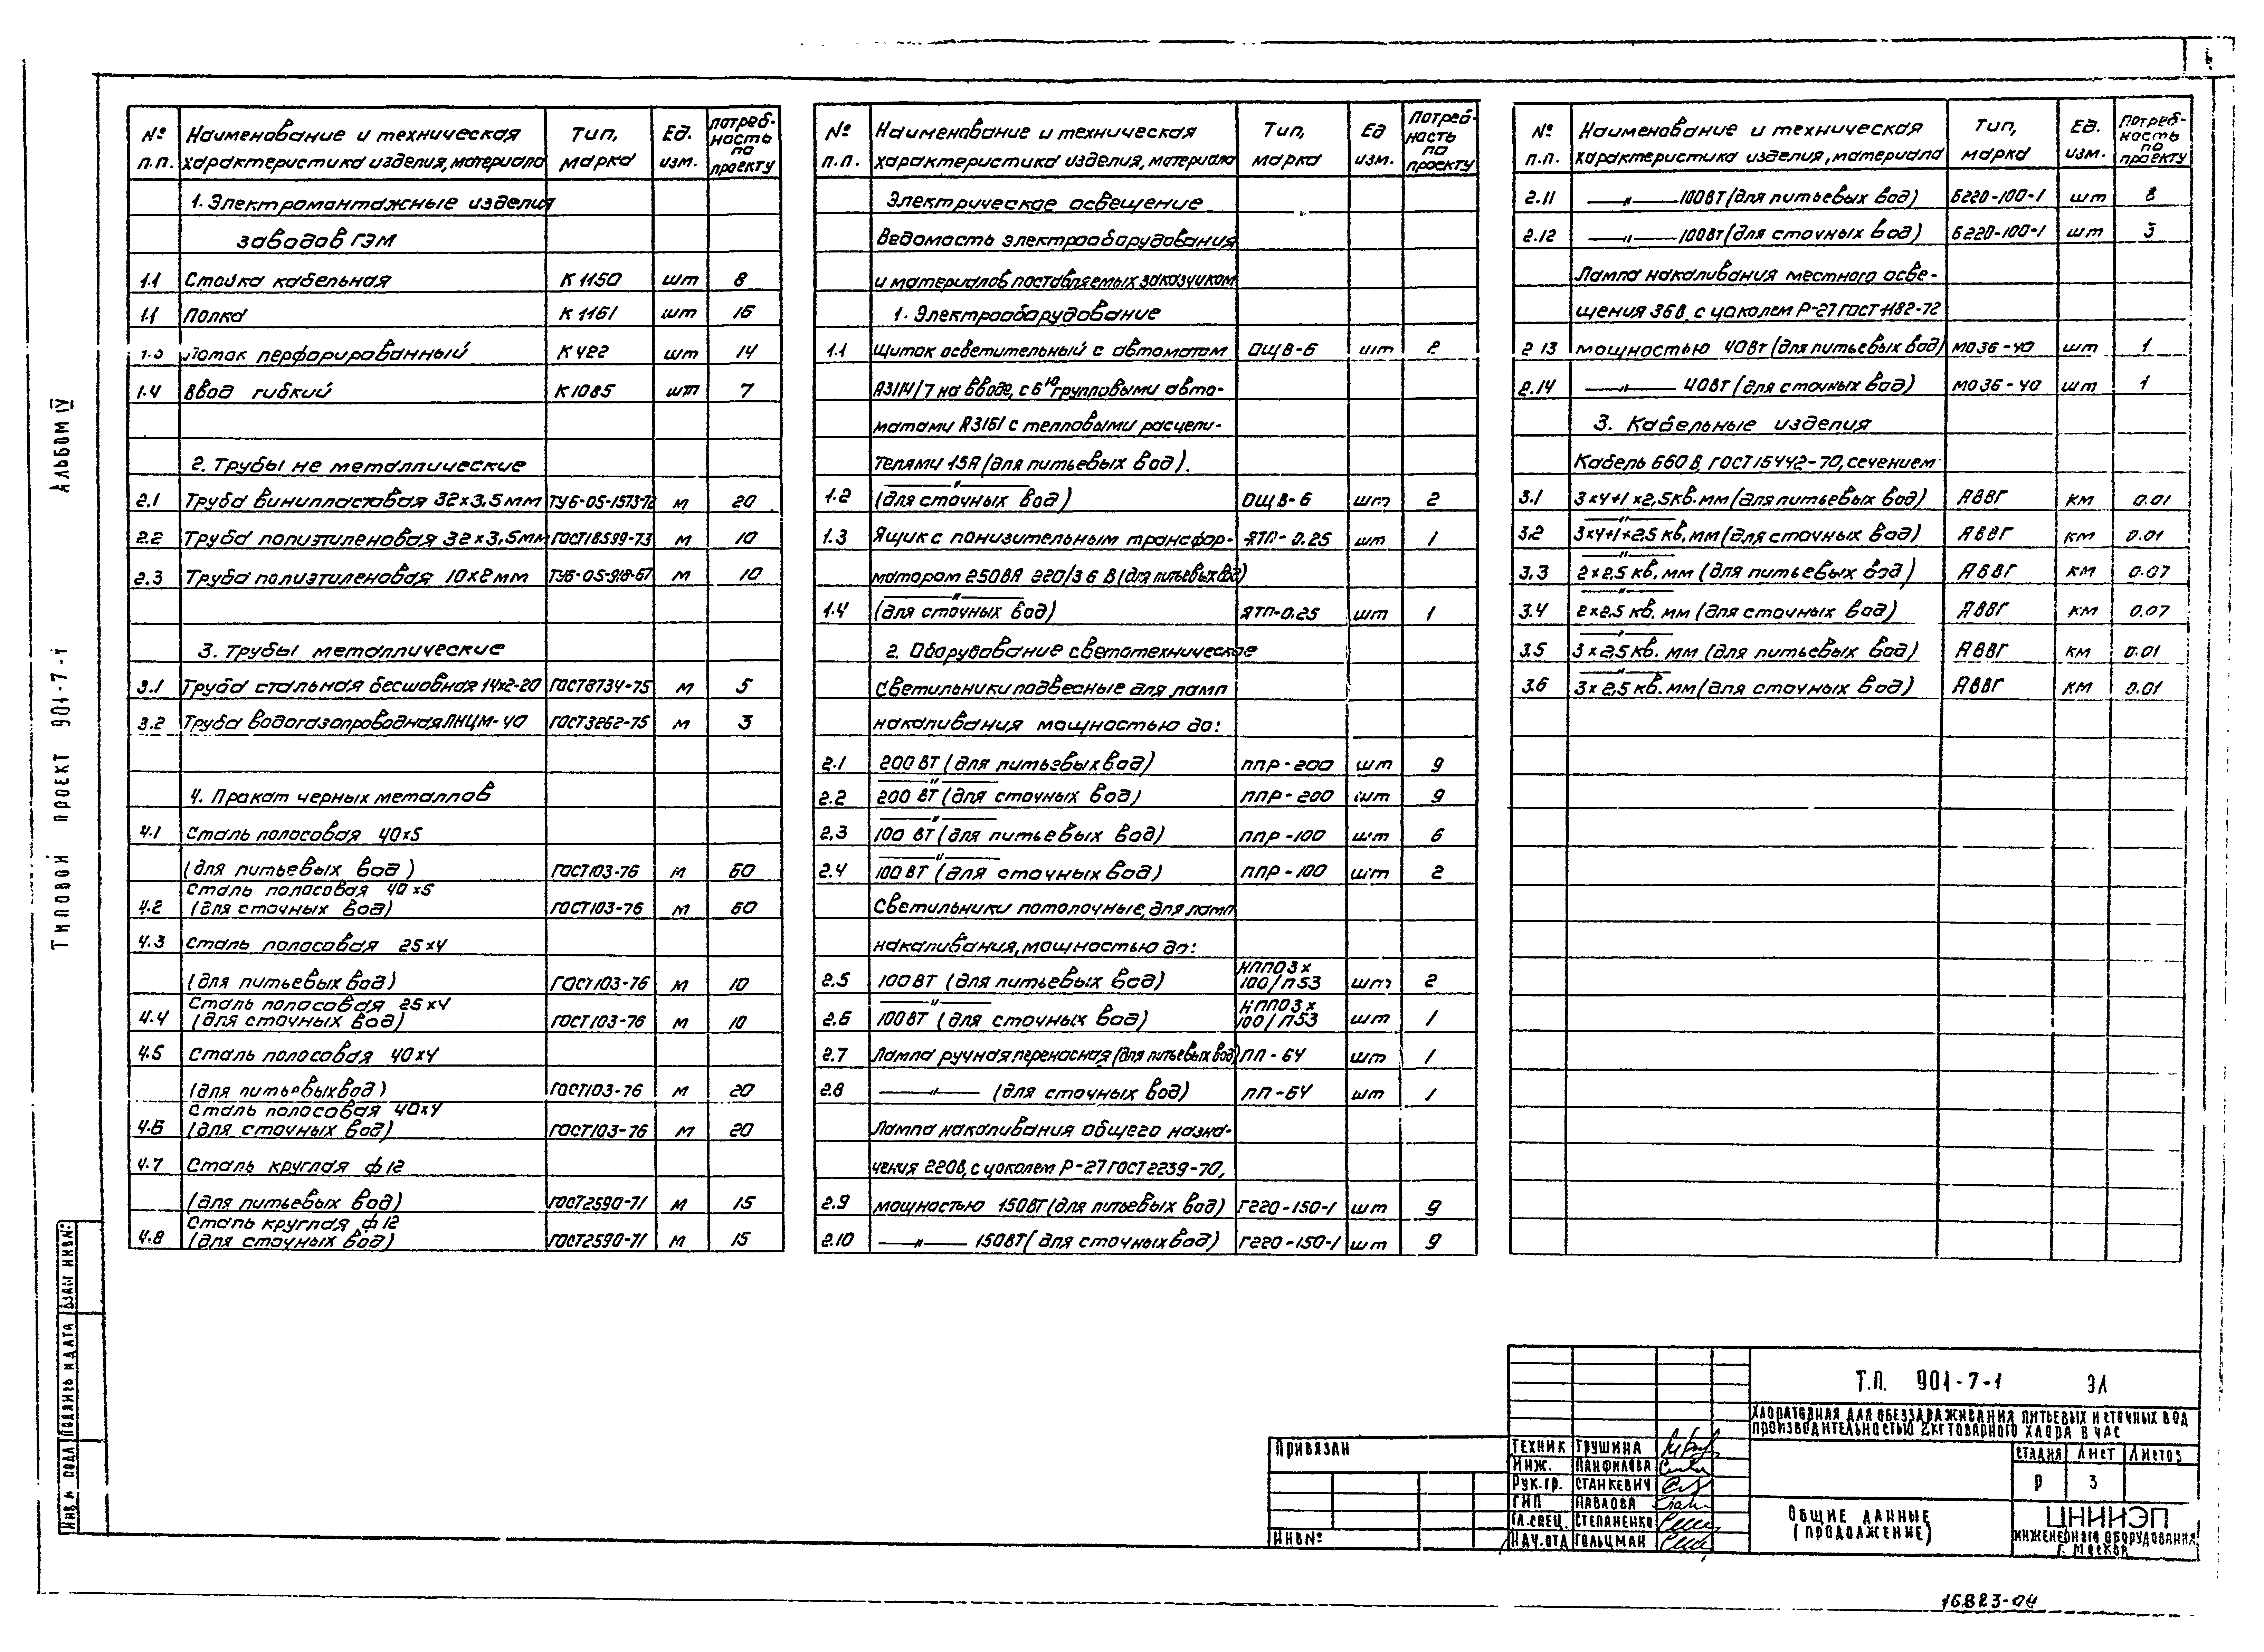 Альбом IV
Типовой проект 901-7-1
№ п.п. Наименование и техническая характеристика изделия, материала Тип, марка Ед. изм. Потребность по проекту
1. Электромонтажные изделия
заводов ГЭМ
1.1 Стойка кабельная К 1150 шт 8
1.1 Полка К 1161 шт 16
Лоток перфорированный К 422 шт 14
1.4 Ввод гибкий К 1085 шт 7
2. Трубы не металлические
2.1 Труба винипластовая 32×3,5мм ТУ6-05-1573-72 м 20
2.2 Труба полиэтиленовая 32×3,5мм ГОСТ18599-73 м 10
2.3 Труба полиэтиленовая 10×2мм ТУ6-05-918-67 м 10
3. Трубы металлические
3.1 Труба стальная бесшовная 14×2-20 ГОСТ8734-75 м 5
3.2 Труба водогазопроводная ЛНЦМ-40 ГОСТ3262-75 м 3
4. Прокат черных металлов
4.1 Сталь полосовая 40×5
(для питьевых вод) ГОСТ103-76 м 60
Сталь полосовая 40×5
4.2 (для сточных вод) ГОСТ103-76 м 60
4.3 Сталь полосовая 25×4
(для питьевых вод) ГОСТ103-76 м 10
Сталь полосовая 25×4
4.4 (для сточных вод) ГОСТ103-76 м 10
4.5 Сталь полосовая 40×4
(для питьевых вод) ГОСТ103-76 м 20
Сталь полосовая 40×4
4.6 (для сточных вод) ГОСТ103-76 м 20
4.7 Сталь круглая ф 12
(для питьевых вод) ГОСТ2590-71 м 15
Сталь круглая ф 12
4.8 (для сточных вод) ГОСТ2590-71 м 15
№ п.п. Наименование и техническая характеристика изделия, материала Тип, марка Ед изм. Потребность по проекту
Электрическое освещение
Ведомость электрооборудования
и материалов поставляемых заказчиком
1. Электрооборудование
1.1 Щиток осветительный с автоматом ОЩВ-6 шт 2
А3114/7 на вводе, с 6ю групповыми авто-
матами А3161 с тепловыми расцепи-
телями 15А (для питьевых вод).
1.2 —〃— (для сточных вод) ОЩВ-6 шт 2
1.3 Ящик с понизительным трансфор- ЯТП-0.25 шт 1
матором 250ВА 220/36 В (для питьевых вод)
1.4 —〃— (для сточных вод) ЯТП-0.25 шт 1
2. Оборудование светотехническое
Светильники подвесные для ламп
накаливания мощностью до:
2.1 200 ВТ (для питьевых вод) ППР-200 шт 9
2.2 —〃— 200 ВТ (для сточных вод) ППР-200 шт 9
2.3 —〃— 100 ВТ (для питьевых вод) ППР-100 шт 6
2.4 —〃— 100 ВТ (для сточных вод) ППР-100 шт 2
Светильники потолочные, для ламп
накаливания, мощностью до:
2.5 100 ВТ (для питьевых вод) НПП03× 100/П53 шт 2
2.6 —〃— 100 ВТ (для сточных вод) НПП03× 100/П53 шт 1
2.7 Лампа ручная переносная (для питьевых вод) ПП-64 шт 1
2.8 —〃— (для сточных вод) ПП-64 шт 1
Лампа накаливания общего назна-
чения 220В, с цоколем Р-27 ГОСТ 2239-70,
2.9 мощностью 150ВТ (для питьевых вод) Г220-150-1 шт 9
2.10 —〃— 150ВТ (для сточных вод) Г220-150-1 шт 9
№ п.п. Наименование и техническая характеристика изделия, материала Тип, марка Ед. изм. Потребность по проекту
2.11 —〃— 100ВТ (для питьевых вод) Б220-100-1 шт 8
2.12 —〃— 100Вт (для сточных вод) Б220-100-1 шт 3
Лампа накаливания местного осве-
щения 36В, с цоколем Р-27 ГОСТ 1182-72
2 13 мощностью 40Вт (для питьевых вод) МО36-40 шт 1
2.14 —〃— 40Вт (для сточных вод) МО36-40 шт 1
3. Кабельные изделия
Кабель 660 В, ГОСТ 16442-70, сечением
3.1 3×4+1×2,5кв. мм (для питьевых вод) АВВГ км 0.01
3.2 —〃— 3×4+1×2.5 кв. мм (для сточных вод) АВВГ км 0.01
3.3 —〃— 2×2.5 кв. мм (для питьевых вод) АВВГ км 0.07
3.4 —〃— 2×2.5 кв. мм (для сточных вод) АВВГ км 0.07
3.5 —〃— 3×2.5 кв. мм (для питьевых вод) АВВГ км 0.01
3.6 —〃— 3×2.5 кв. мм (для сточных вод) АВВГ км 0.01
Инв № подл Подпись и дата Взам инв№
Привязан
Инв№
Техник Трушина
Инж. Панфилова
Рук.гр. Станкевич
ГИП Павлова
Гл.спец. Степаненко
Нач.отд Гольцман
Т.П. 901-7-1 ЭЛ
Хлораторная для обеззараживания питьевых и сточных вод
производительностью 2кг товарного хлора в час
Стадия Лист Листов
Р 3
Общие данные
(продолжение)
ЦНИИЭП
инженерного оборудования
г. Москва
16823-04